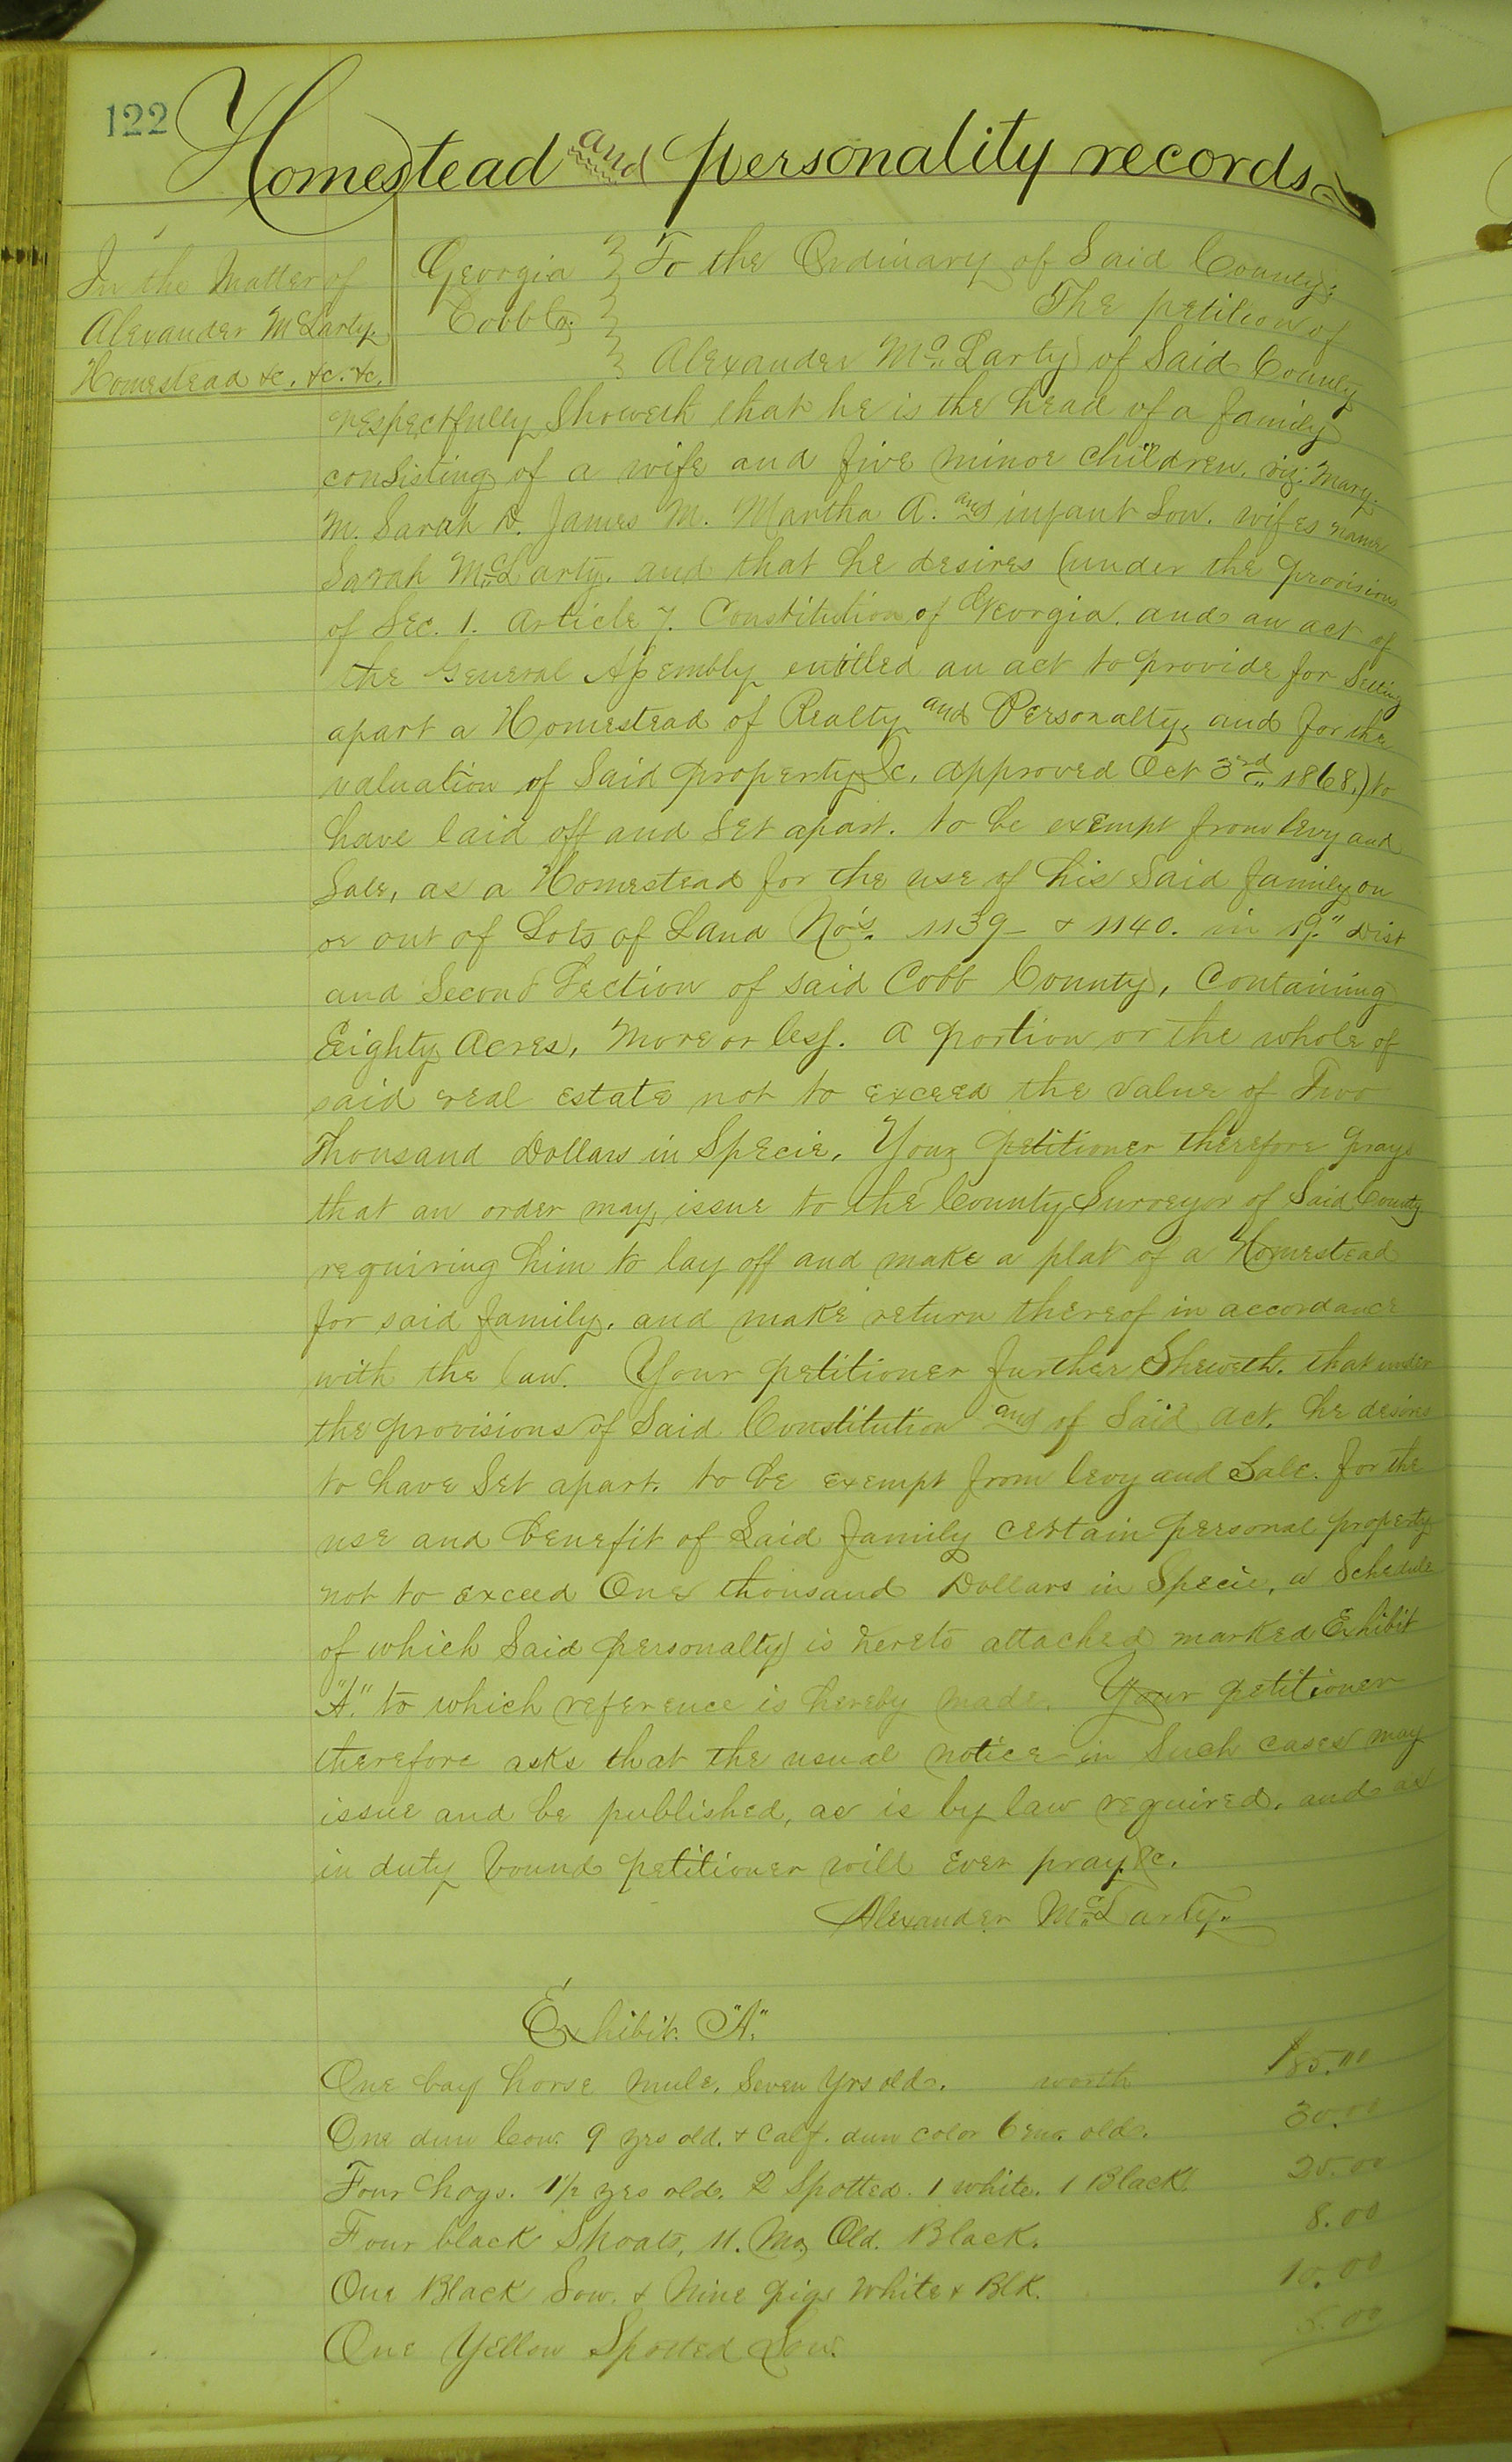 122
Homestead and personality records
In the Matter of
Alexander McLarty.
Homestead &c. &c. &c.
Georgia } To the Ordinary of Said County;
Cobb Co. } The petition of
Alexander McLarty of Said County
respectfully Showeth that he is the head of a family
consisting of a wife and five minor children, viz: Mary.
M. Sarah D. James M. Martha A. and infant Son. wifes name
Sarah McLarty. and that he desires (under the provisions
of Sec. 1. Article 7. Constitution of Georgia. and an act of
the General Assembly entitled an act to provide for Setting
apart a Homestead of Realty and Personalty, and for the
valuation of Said property &c, approved Oct 3rd 1868.) to
have laid off and Set apart. to be exempt from levy and
Sale, as a Homestead for the use of his Said family on
or out of Lots of Land No's. 1139 - & 1140. in 19" Dist
and Second Section of said Cobb County, Containing
Eighty Acres, More or less. A portion or the whole of
said real estate not to exceed the value of Two
Thousand Dollars in Specie, Your petitioner therefore prays
that an order may issue to the County Surveyor of Said County
requiring him to lay off and make a plat of a Homestead
for said family. and make return thereof in accordance
with the law. Your petitioner further Sheweth. that under
the provisions of Said Constitution and of Said act. he desires
to have Set apart. to be exempt from levy and Sale. for the
use and benefit of Said family certain personal property
not to exceed One thousand Dollars in Specie, a Schedule
of which Said personalty is hereto attached marked Exhibit
"A." to which reference is hereby made. Your petitioner
therefore asks that the usual notice in Such cases may
issue and be published, as is by law required. and as
in duty bound petitioner will ever pray &c.
Alexander McLarty.
Exhibit. "A."
One bay horse mule, Seven Yrs old. worth $85.00
One dun Cow. 9 yrs old. & Calf. dun color 6 mo. old. 30.00
Four hogs. 1½ yrs old. 2 Spotted. 1 white. 1 Black. 20.00
Four black Shoats, 11. Mo, Old. Black. 8.00
One Black Sow. & Nine pigs White & Blk. 10.00
One Yellow Spotted Sow. 5.00